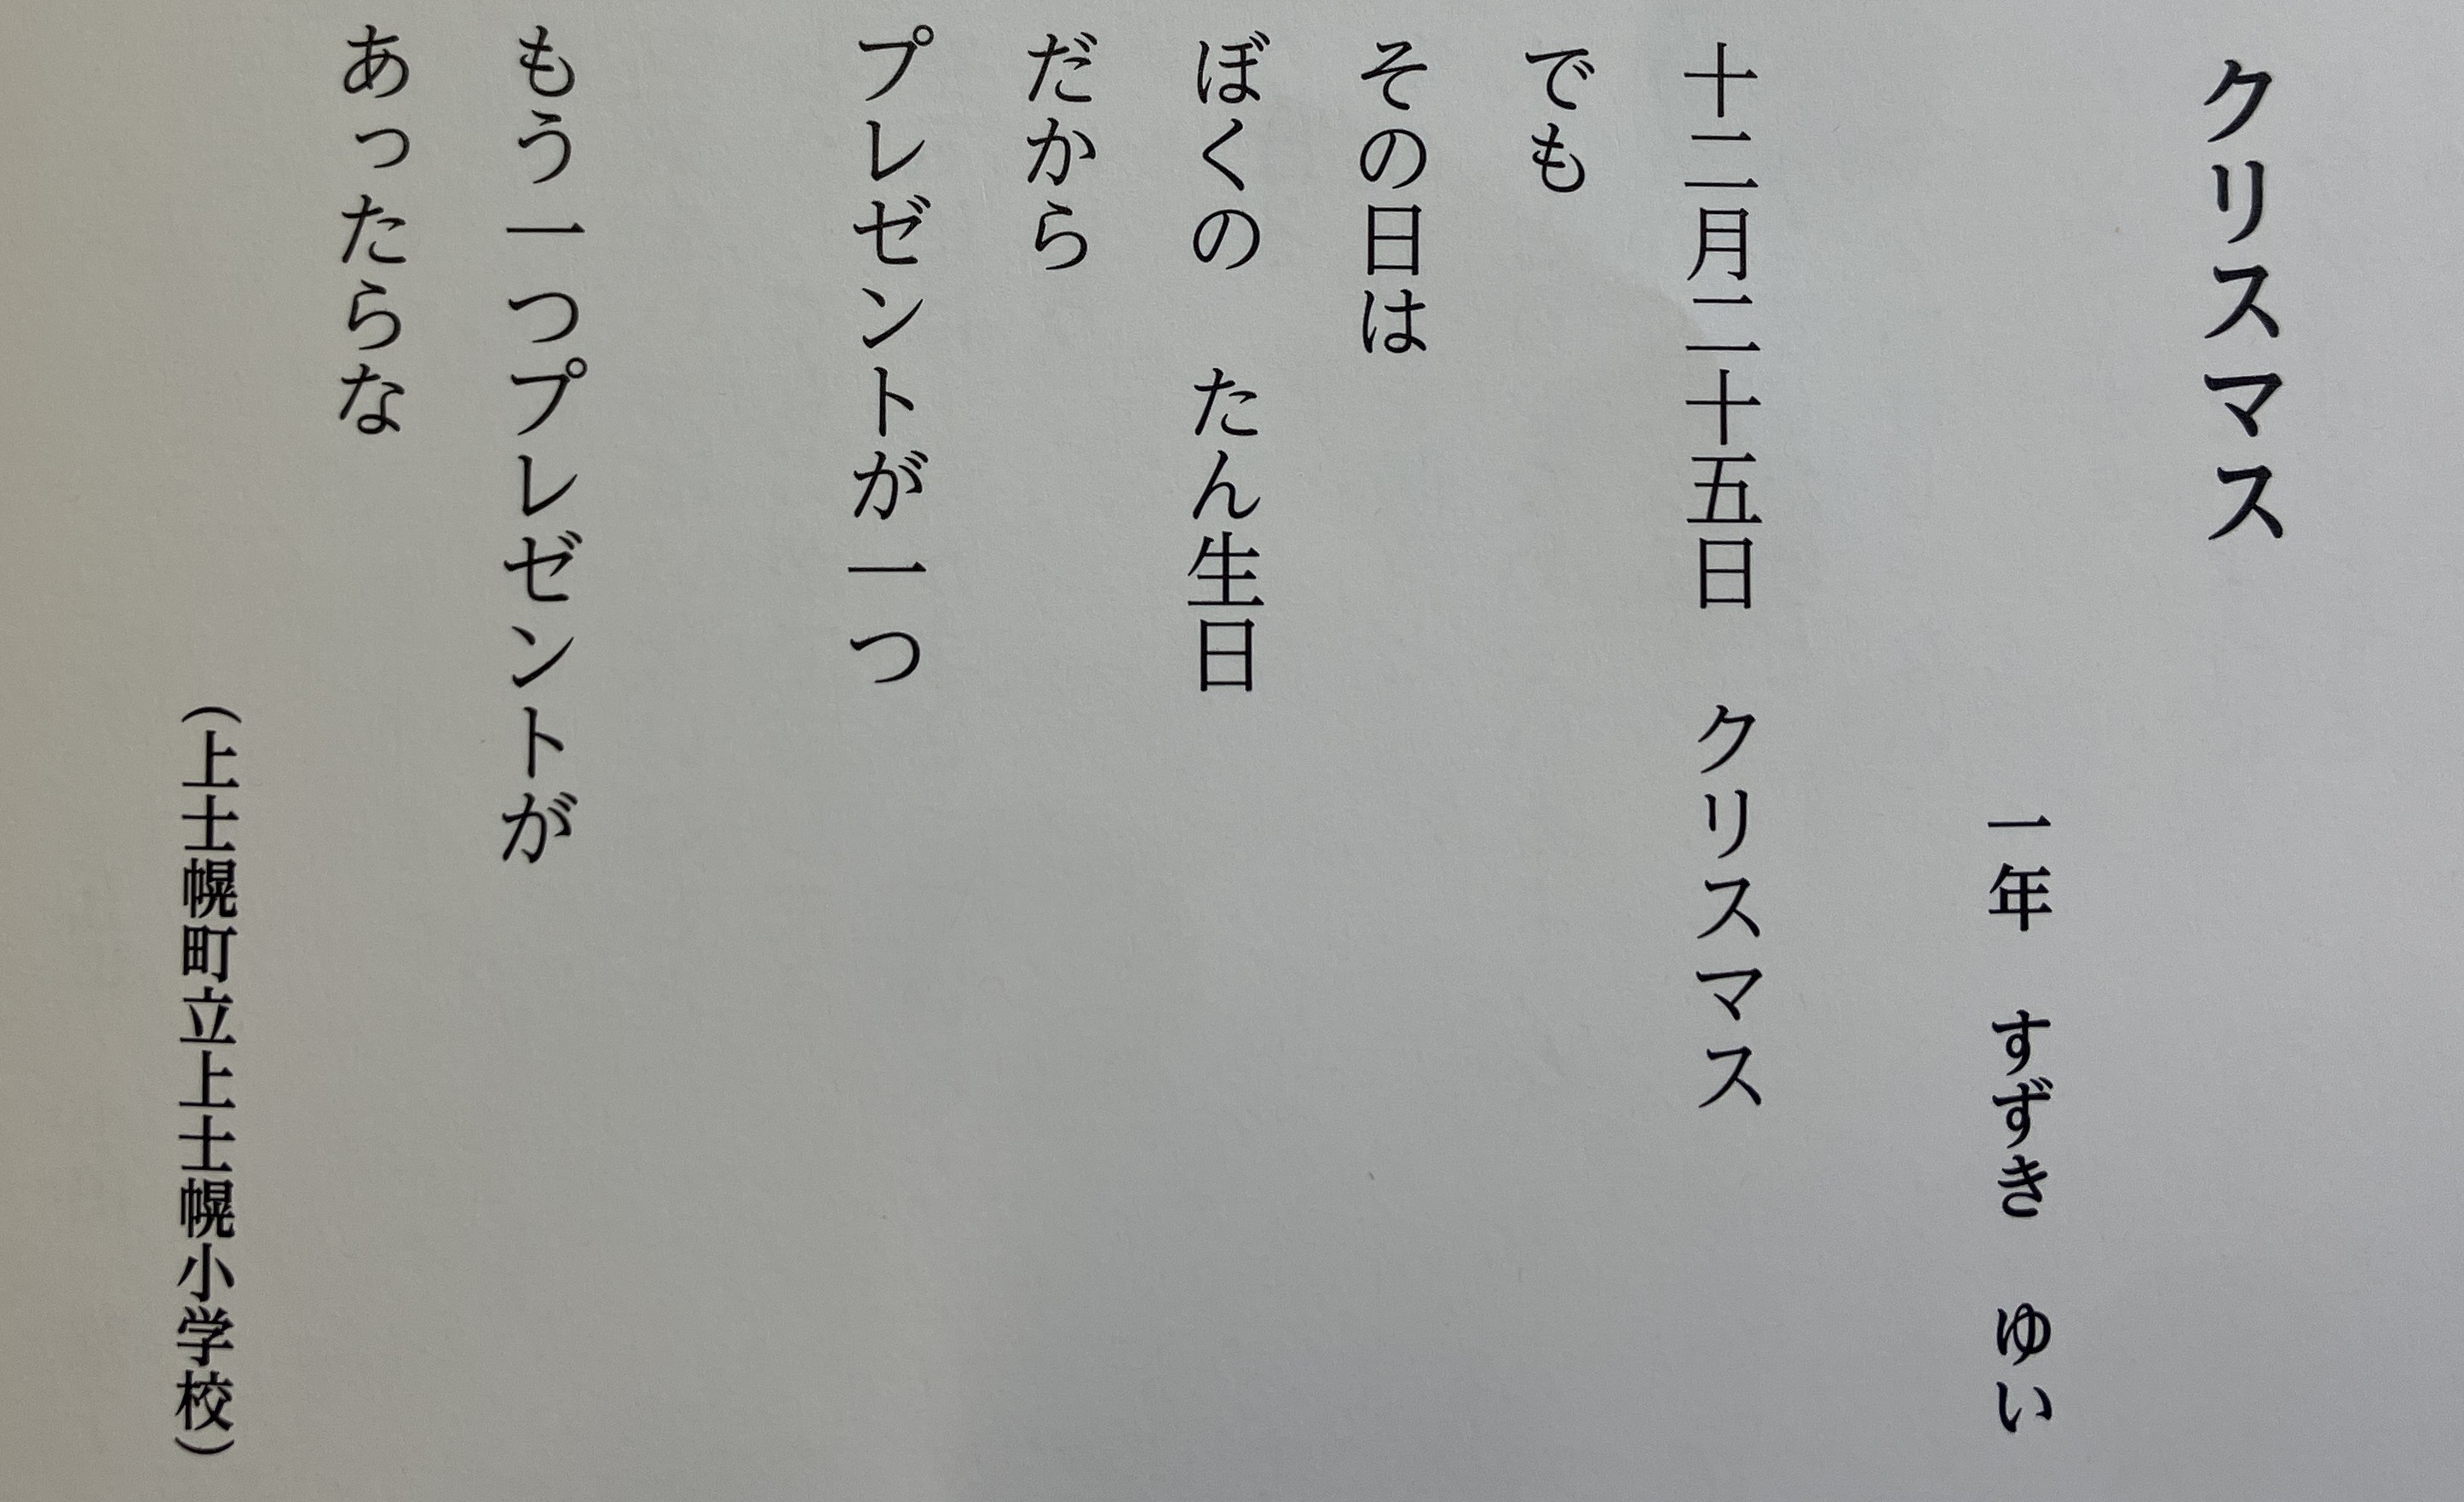 クリスマス
一年　すずき　ゆい
十二月二十五日　クリスマス
でも
その日は
ぼくの　たん生日
だから
プレゼントが一つ
もう一つプレゼントが
あったらな
（上士幌町立上士幌小学校）